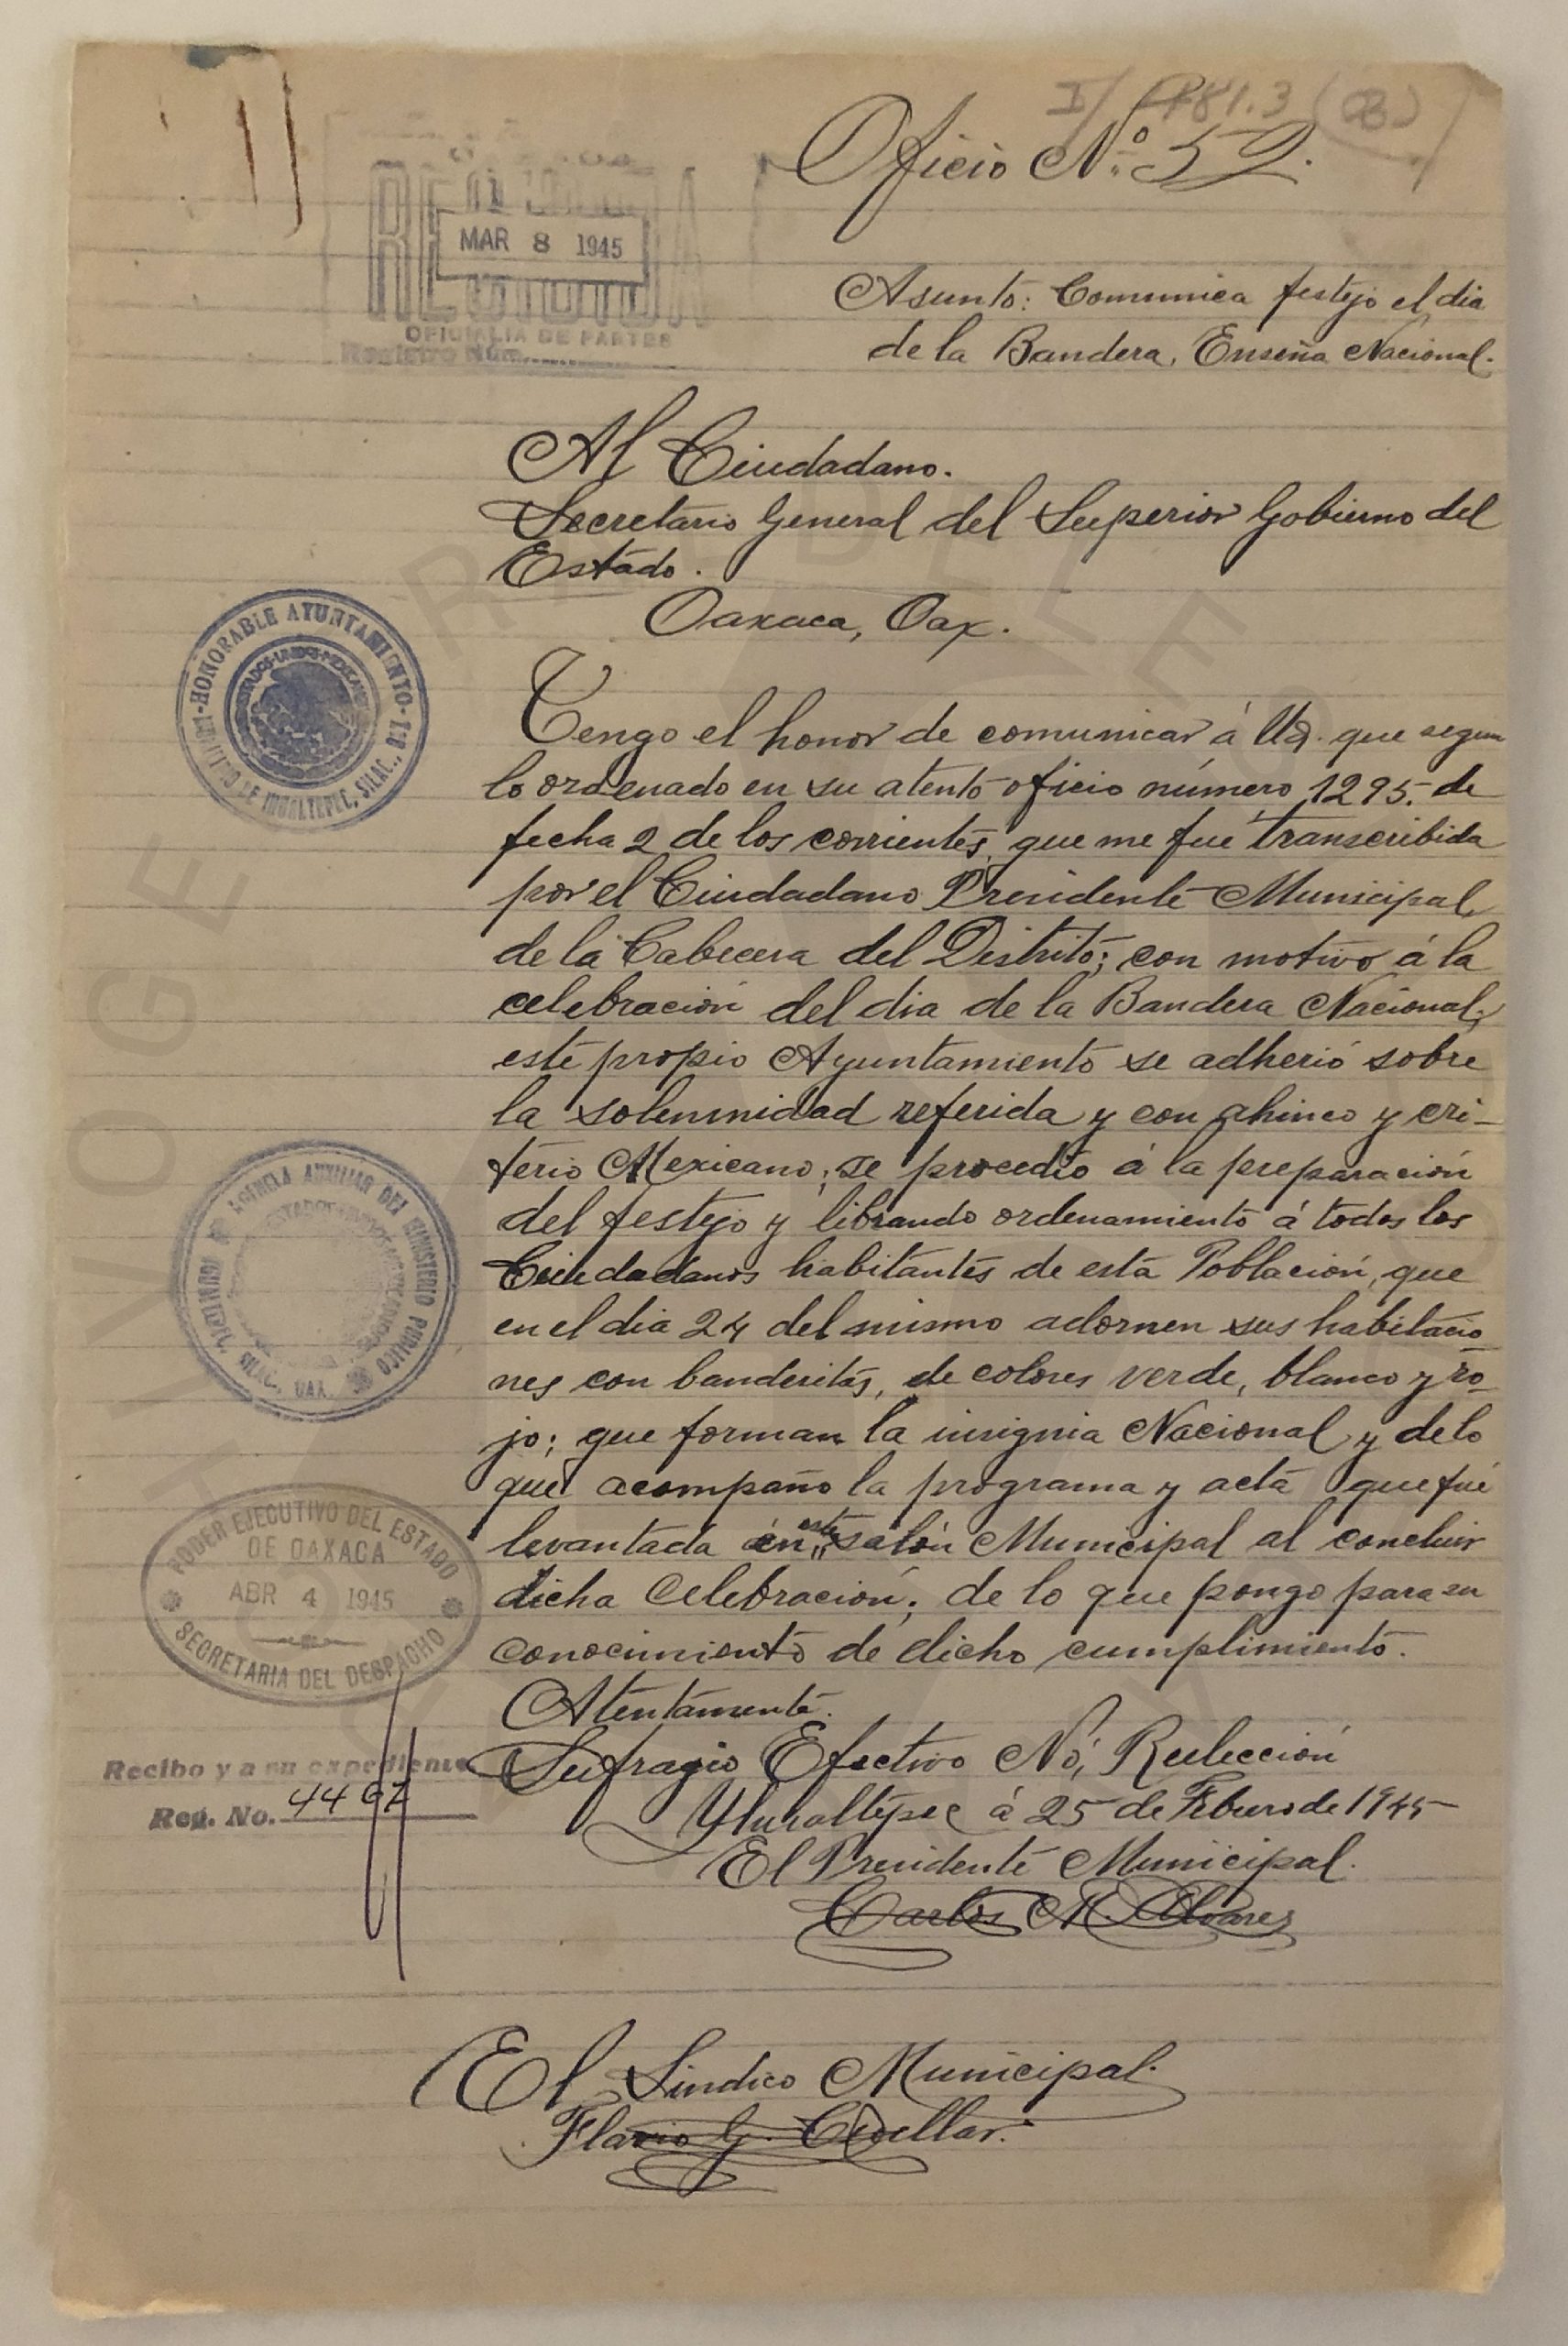 I/181.3 (OB)
Oficio Nº 52.
RECIBIDA
MAR 8 1945
OFICIALIA DE PARTES
Registro Núm.
Asunto: Comunica festejo el dia
de la Bandera, Enseña Nacional.
Al Ciudadano.
Secretario General del Superior Gobierno del
Estado.
Oaxaca, Oax.
HONORABLE AYUNTAMIENTO
ESTADOS UNIDOS MEXICANOS
SILAC.
Tengo el honor de comunicar á Ud. que segun
lo ordenado en su atento oficio número 1295. de
fecha 2 de los corrientes, que me fue transcribida
por el Ciudadano Presidente Municipal,
de la Cabecera del Distrito; con motivo á la
celebración del dia de la Bandera Nacional;
este propio Ayuntamiento se adherió sobre
la solemnidad referida y con ahinco y cri-
terio Mexicano; se procedio á la preparación
del festejo y librando ordenamiento á todos los
Ciudadanos habitantes de esta Población, que
en el dia 24 del mismo adornen sus habitacio-
nes con banderitas, de colores verde, blanco y ro-
jo; que forman la insignia Nacional y de lo
que acompaño la programa y acta que fué
levantada en este salón Municipal al concluir
dicha celebración; de lo que pongo para su
conocimiento de dicho cumplimiento.
AUXILIAR DEL MINISTERIO PUBLICO
SILAC. OAX.
PODER EJECUTIVO DEL ESTADO
DE OAXACA
ABR 4 1945
SECRETARIA DEL DESPACHO
Atentamente.
Sufragio Efectivo No, Reelección
Recibo y a su expediente
Reg. No. 4467
Yhualtepec á 25 de Febrero de 1945
El Presidente Municipal.
Carlos M. Alvares
El Sindico Municipal.
Flavio G. Cuellar.